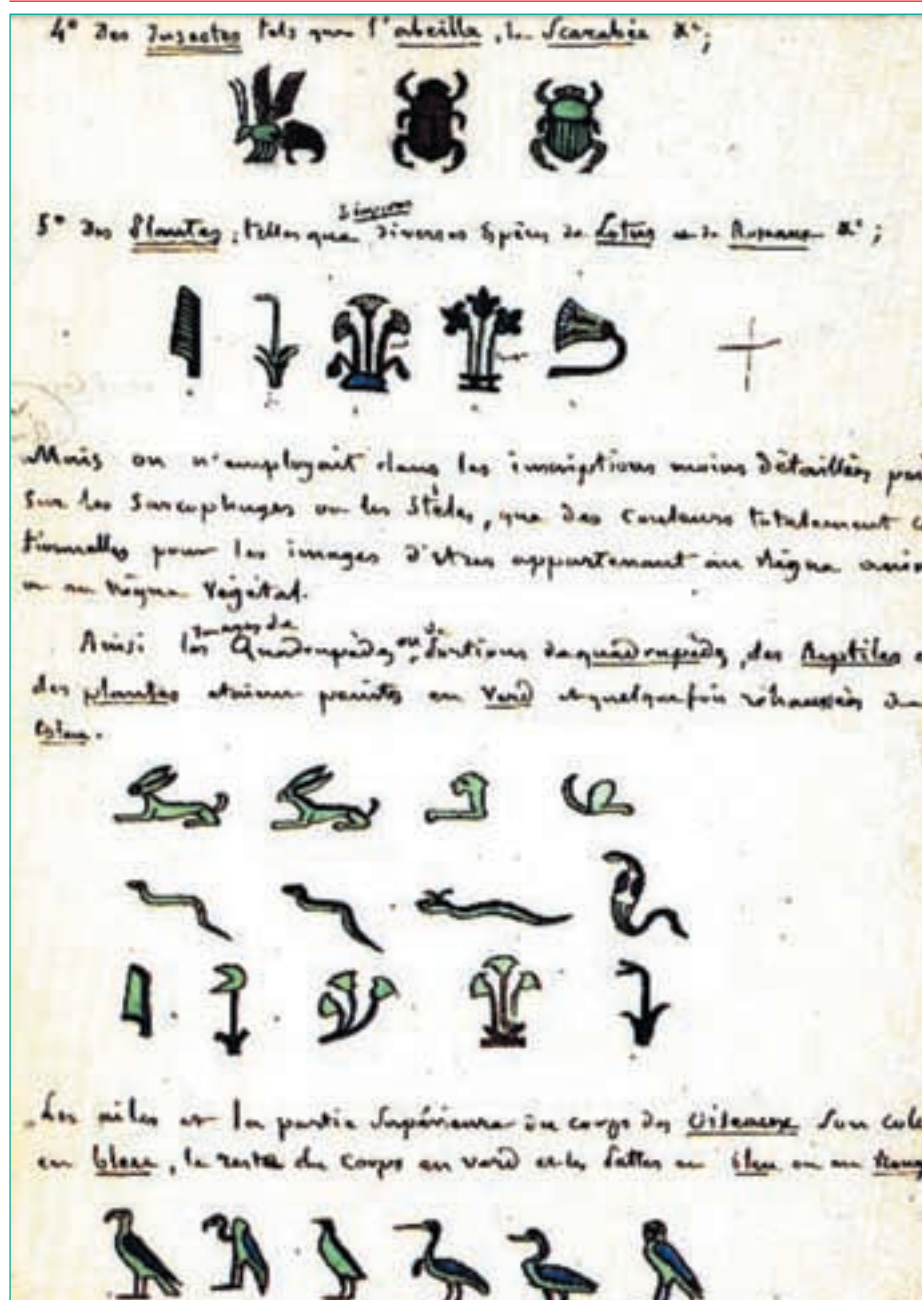 4° Des Insectes tels que l'abeille, le Scarabée &c;
divers
5° Des Plantes, telles que diverses Espèces de Lotus et de Roseaux &c;
Mais on n'employait dans les inscriptions moins détaillées
Sur les Sarcophages ou les Stèles, que des Couleurs totalement
tionnelles pour les images d'êtres appartenant au Règne
ou au Règne Végétal.
images de
Ainsi les Quadrupèdes ou de portions de quadrupèdes, des Reptiles
des plantes étaient peints en Verd et quelquefois réhaussées de
bleu.
Les ailes et la partie Supérieure du corps des Oiseaux Sont
en bleu, le reste du Corps en verd et les Pattes en bleu ou en